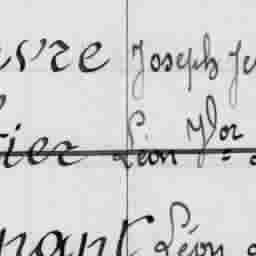 uvre Joseph Je
tier Léon Vor =
nant Léon